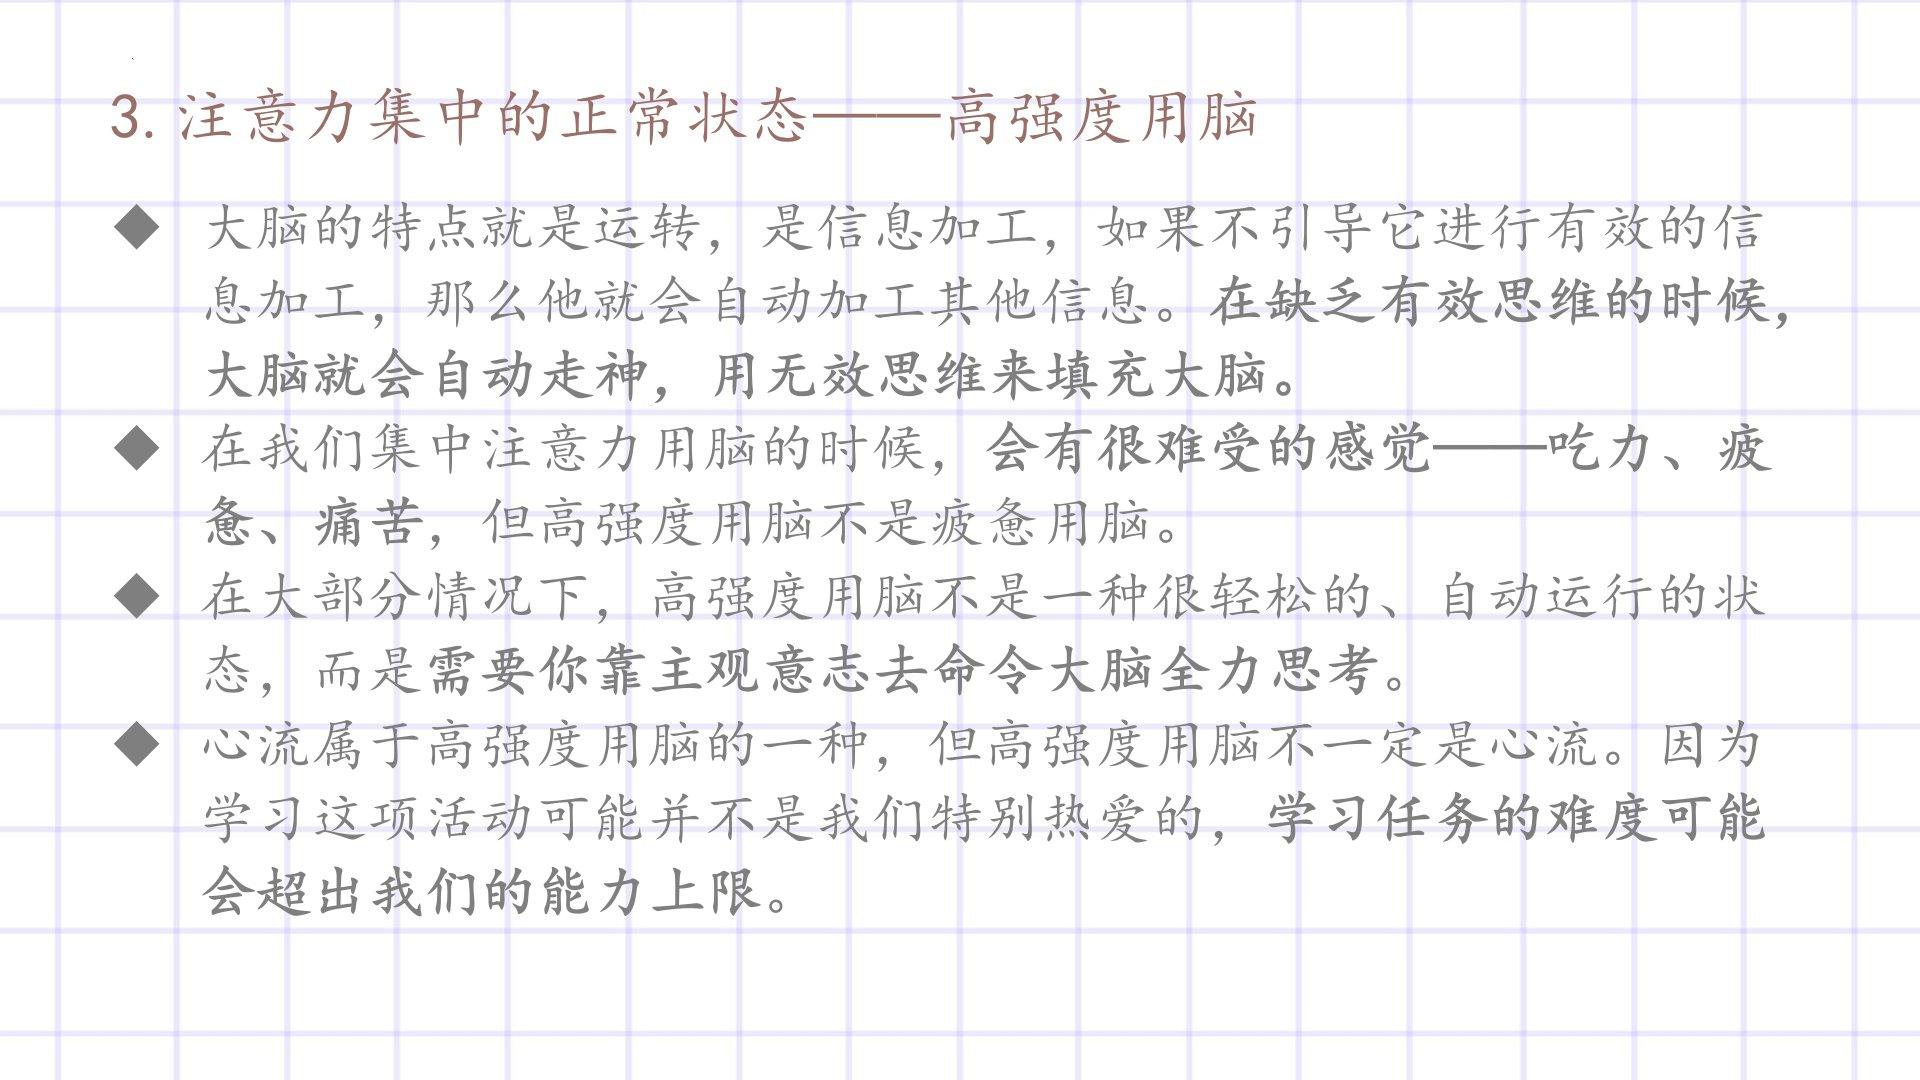 3. 注意力集中的正常状态——高强度用脑
◆ 大脑的特点就是运转，是信息加工，如果不引导它进行有效的信
息加工，那么他就会自动加工其他信息。在缺乏有效思维的时候，
大脑就会自动走神，用无效思维来填充大脑。
◆ 在我们集中注意力用脑的时候，会有很难受的感觉——吃力、疲
惫、痛苦，但高强度用脑不是疲惫用脑。
◆ 在大部分情况下，高强度用脑不是一种很轻松的、自动运行的状
态，而是需要你靠主观意志去命令大脑全力思考。
◆ 心流属于高强度用脑的一种，但高强度用脑不一定是心流。因为
学习这项活动可能并不是我们特别热爱的，学习任务的难度可能
会超出我们的能力上限。